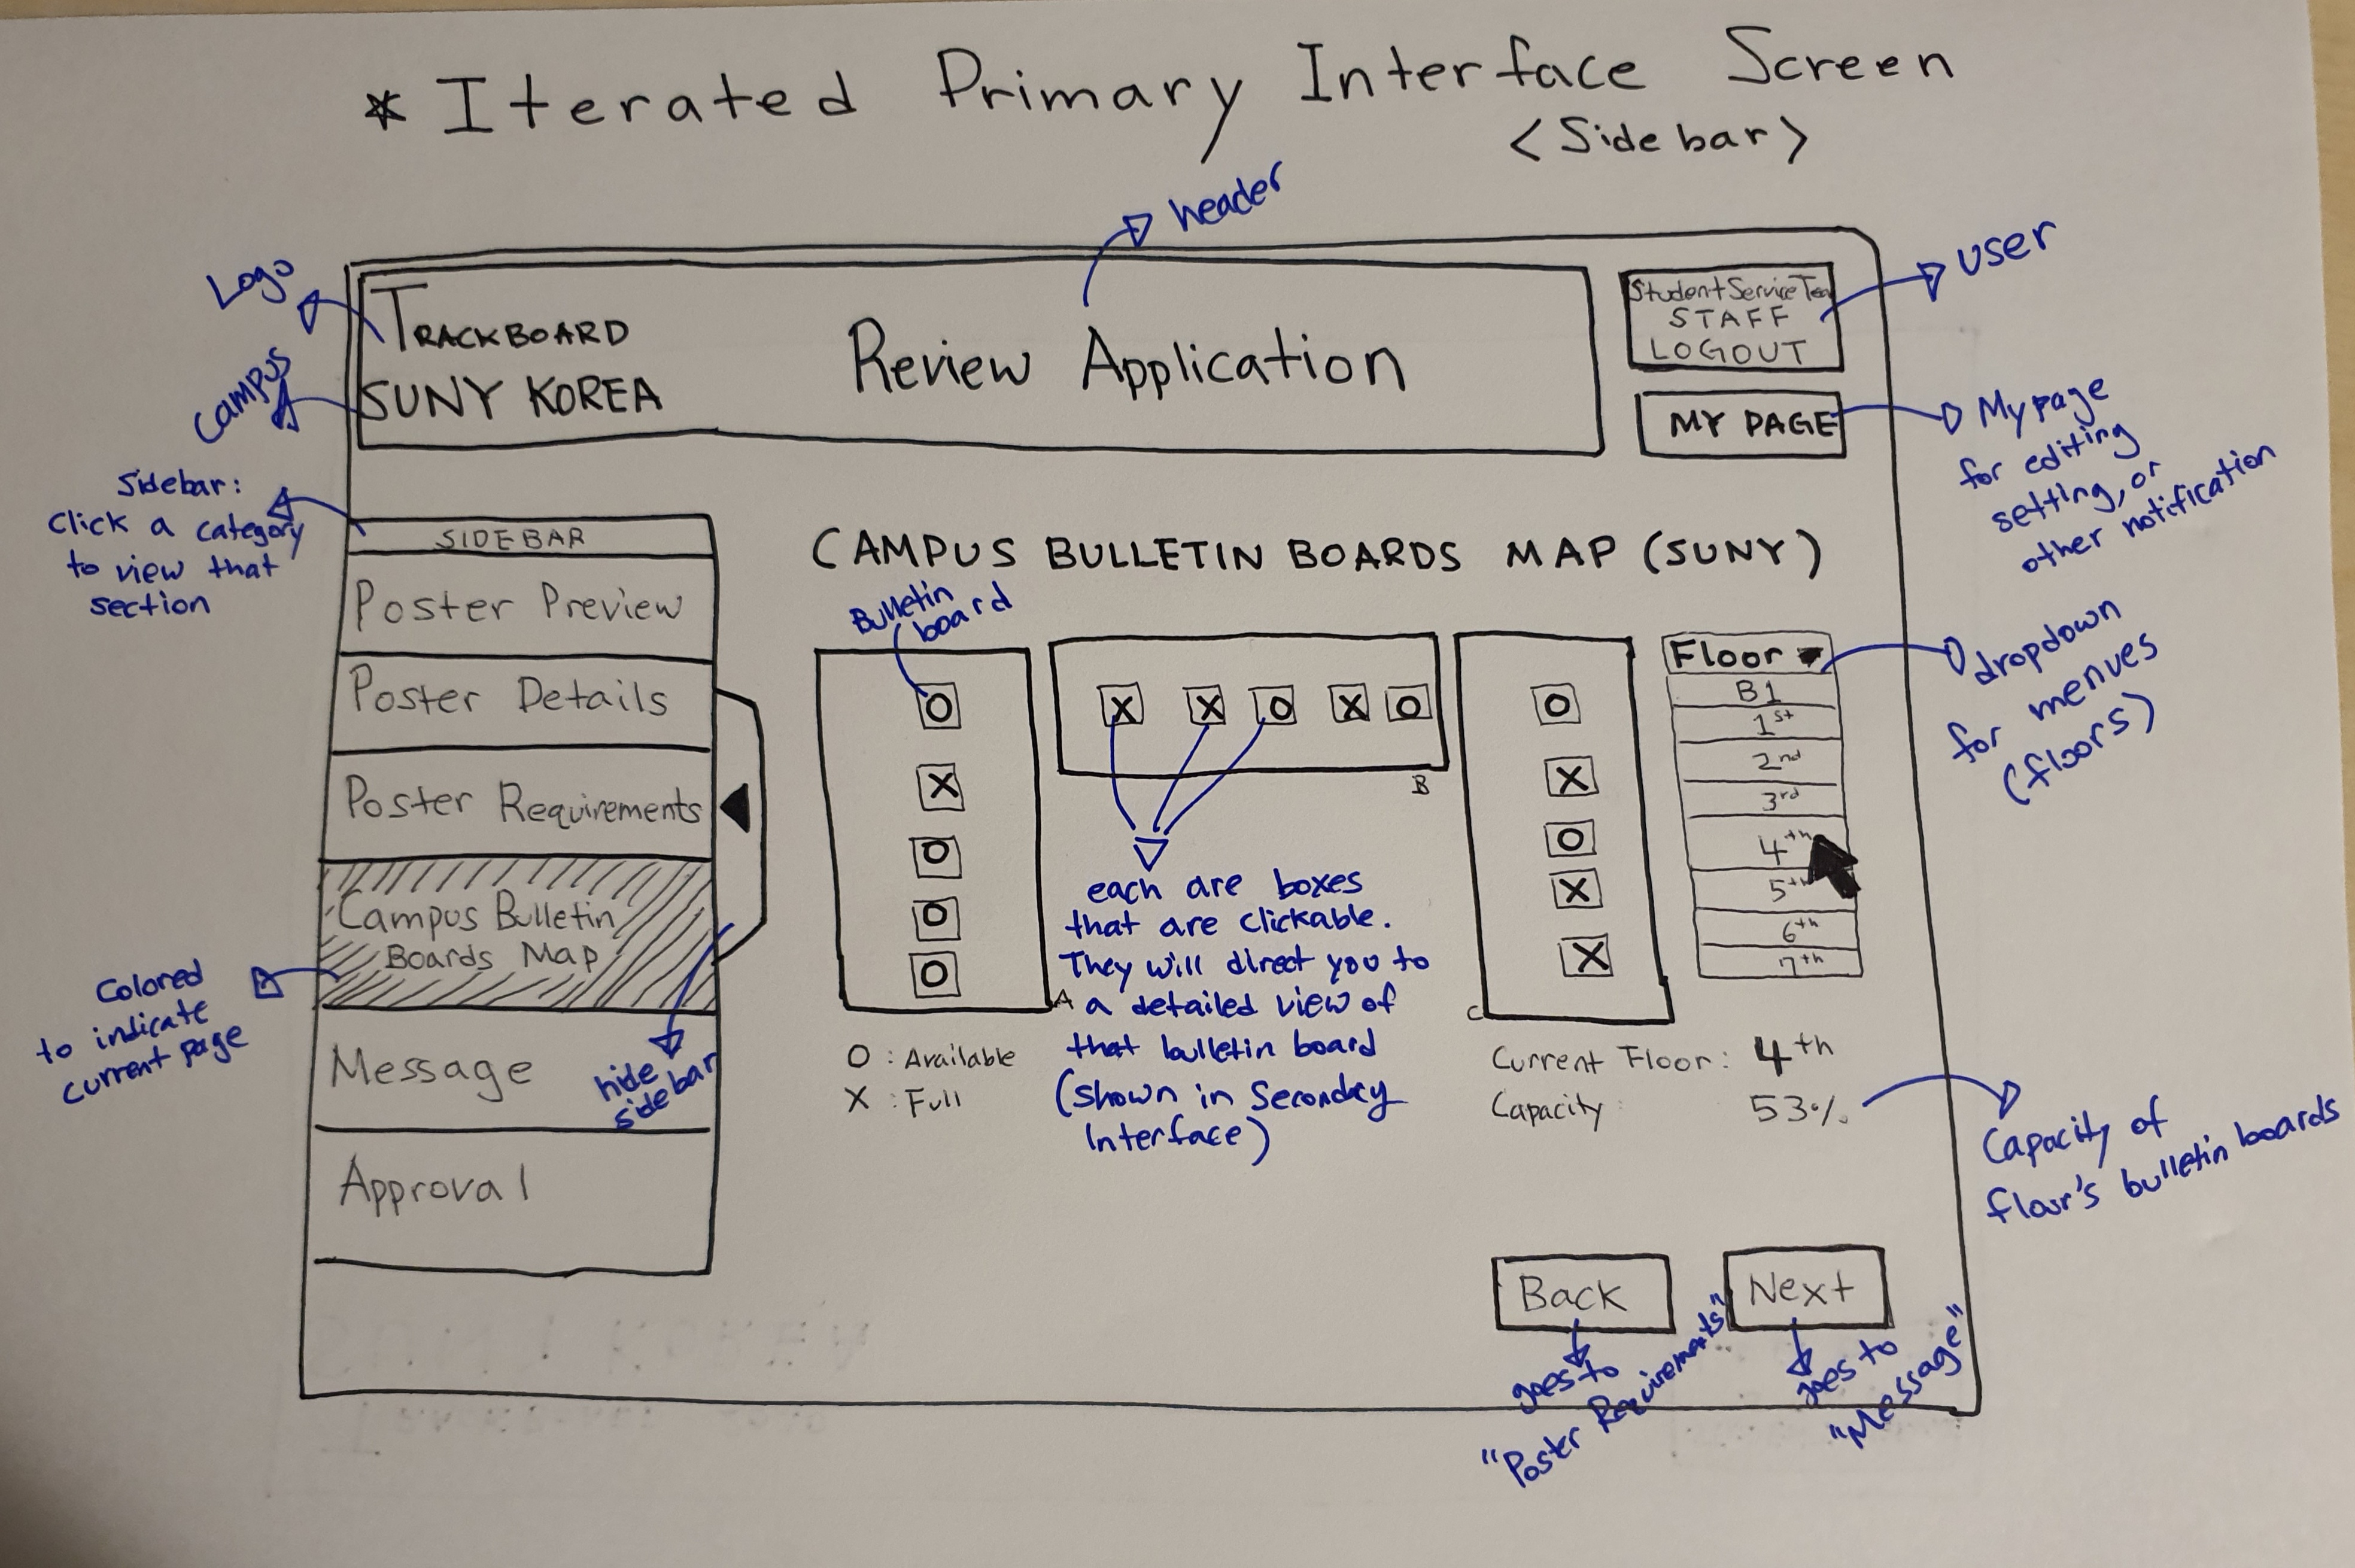 * Iterated Primary Interface Screen
<Sidebar>
header
Logo
Campus
TRACKBOARD
SUNY KOREA
Review Application
Student Service Tea
STAFF
LOGOUT
user
MY PAGE
My page
for editing
setting, or
other notification
Sidebar:
click a category
to view that
section
SIDEBAR
Poster Preview
Poster Details
Poster Requirements
Campus Bulletin
Boards Map
Message
Approval
Colored
to indicate
current page
hide
sidebar
CAMPUS BULLETIN BOARDS MAP (SUNY)
Bulletin
board
O
X
O
O
O
A
X X O X O
B
O
X
O
X
X
C
each are boxes
that are clickable.
They will direct you to
a detailed view of
that bulletin board
(shown in Secondary
Interface)
O : Available
X : Full
Floor ▼
B1
1st
2nd
3rd
4th
5th
6th
7th
dropdown
for menues
(floors)
Current Floor: 4th
Capacity : 53%
Capacity of
floor's bulletin boards
Back
Next
goes to
"Poster Requirements"
goes to
"Message"